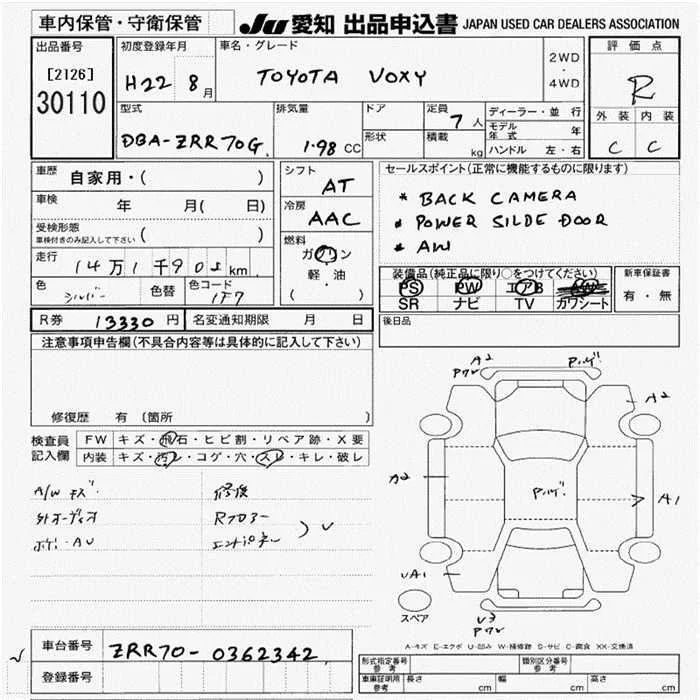 車内保管・守衛保管
JU 愛知 出品申込書 JAPAN USED CAR DEALERS ASSOCIATION
出品番号
[2126]
30110
初度登録年月
H22 8月
車名・グレード
TOYOTA VOXY
2WD
・
4WD
評価点
R
外装 内装
C C
型式
DBA-ZRR70G
排気量
1.98 CC
ドア
形状
定員
7人
積載
kg
ディーラー・並行
モデル年式 年
ハンドル 左・右
車歴
自家用・( )
車検
年 月( 日)
受検形態
車検付きのみ記入して下さい ( )
走行
14万1千902km
色
シルバー
色替
色コード
1F7
シフト
AT
冷房
AAC
燃料
ガソリン
軽・油
( )
セールスポイント(正常に機能するものに限ります)
* BACK CAMERA
* POWER SILDE DOOR
* AW
装備品(純正品に限り○をつけてください)
PS PW エアB
SR ナビ TV カワシート
新車保証書
有・無
R券 13330円
名変通知期限 月 日
後日品
注意事項申告欄(不具合内容等は具体的に記入して下さい)
修復歴 有 〔箇所
検査員
記入欄
FW キズ・飛石・ヒビ割・リペア跡・X要
内装 キズ・汚レ・コゲ・穴・スレ・キレ・破レ
A/W キズ
外オーディオ
修後
Rフロアー
エンドパネル
A2
A2
A2
A1
UA1
U3
スペア
A-キズ E-エクボ U-凹み W-補修跡 S-サビ C-腐食 XX-交換済
車台番号
ZRR70-0362342
登録番号
形式指定番号
参考
類別区分番号
参考
車庫証明用
参考
長さ cm 幅 cm 高さ cm